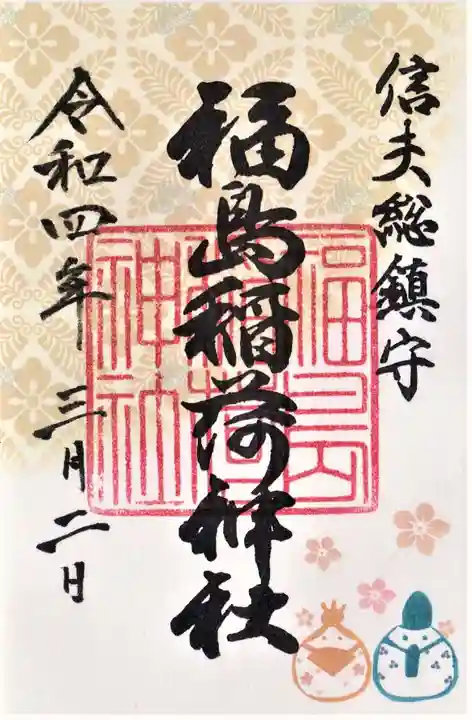 信夫総鎮守
福島稲荷神社
令和四年 三月二日
福島稲荷神社